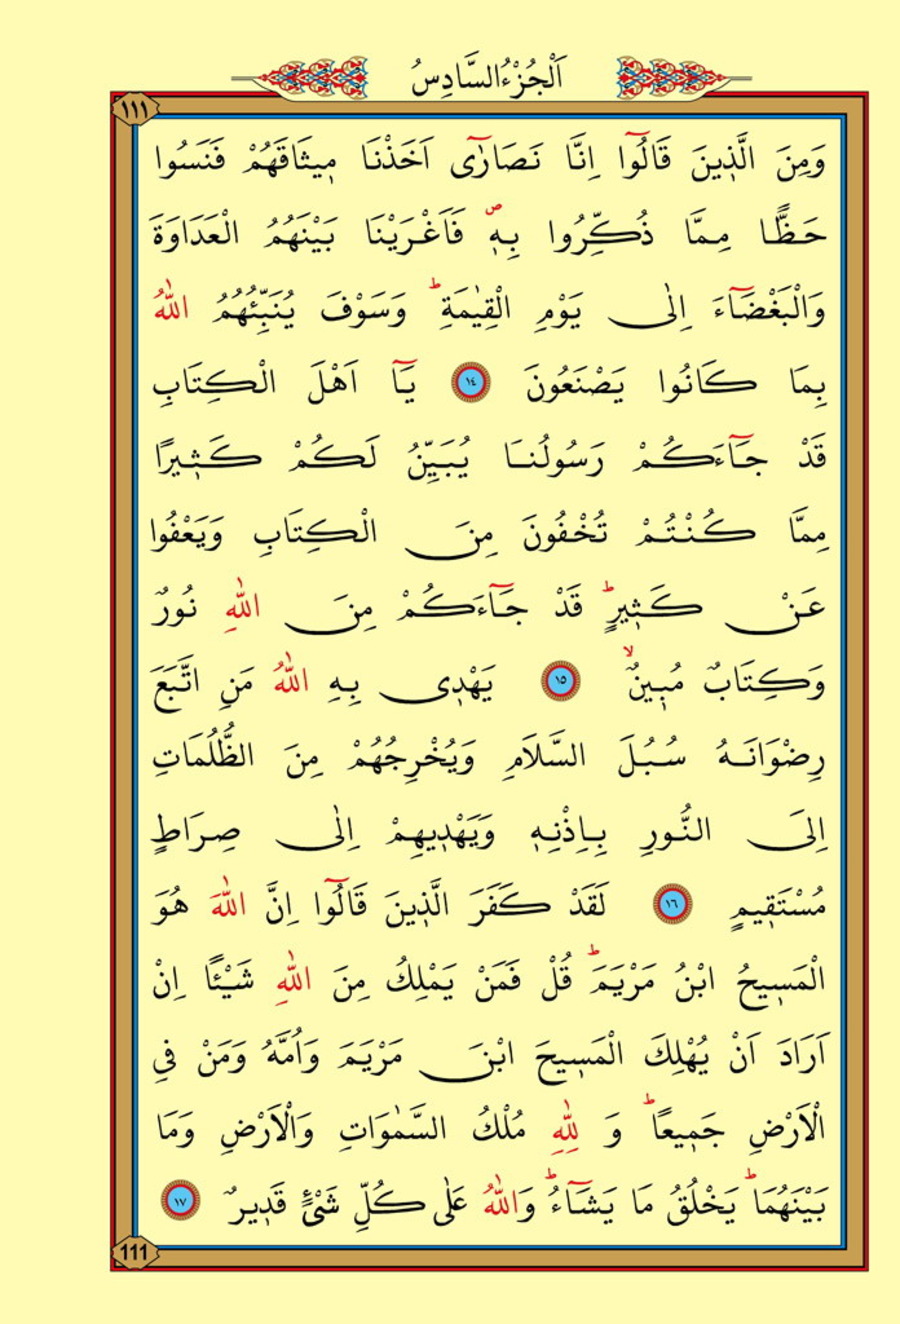 اَلْجُزْءُ السَّادِسُ
١١١
وَمِنَ الَّذ۪ينَ قَالُٓوا اِنَّا نَصَارٰٓى اَخَذْنَا م۪يثَاقَهُمْ فَنَسُوا
حَظًّا مِمَّا ذُكِّرُوا بِه۪ۖ فَاَغْرَيْنَا بَيْنَهُمُ الْعَدَاوَةَ
وَالْبَغْضَٓاءَ اِلٰى يَوْمِ الْقِيٰمَةِۜ وَسَوْفَ يُنَبِّئُهُمُ اللّٰهُ
بِمَا كَانُوا يَصْنَعُونَ ١٤ يَٓا اَهْلَ الْكِتَابِ
قَدْ جَٓاءَكُمْ رَسُولُنَا يُبَيِّنُ لَكُمْ كَث۪يرًا
مِمَّا كُنْتُمْ تُخْفُونَ مِنَ الْكِتَابِ وَيَعْفُوا
عَنْ كَث۪يرٍۜ قَدْ جَٓاءَكُمْ مِنَ اللّٰهِ نُورٌ
وَكِتَابٌ مُب۪ينٌۙ ١٥ يَهْد۪ي بِهِ اللّٰهُ مَنِ اتَّبَعَ
رِضْوَانَهُ سُبُلَ السَّلَامِ وَيُخْرِجُهُمْ مِنَ الظُّلُمَاتِ
اِلَى النُّورِ بِاِذْنِه۪ وَيَهْد۪يهِمْ اِلٰى صِرَاطٍ
مُسْتَق۪يمٍ ١٦ لَقَدْ كَفَرَ الَّذ۪ينَ قَالُٓوا اِنَّ اللّٰهَ هُوَ
الْمَس۪يحُ ابْنُ مَرْيَمَۜ قُلْ فَمَنْ يَمْلِكُ مِنَ اللّٰهِ شَيْـًٔا اِنْ
اَرَادَ اَنْ يُهْلِكَ الْمَس۪يحَ ابْنَ مَرْيَمَ وَاُمَّهُ وَمَنْ فِي
الْاَرْضِ جَم۪يعًاۜ وَ لِلّٰهِ مُلْكُ السَّمٰوَاتِ وَالْاَرْضِ وَمَا
بَيْنَهُمَاۜ يَخْلُقُ مَا يَشَٓاءُۜ وَاللّٰهُ عَلٰى كُلِّ شَيْءٍ قَد۪يرٌ ١٧
111